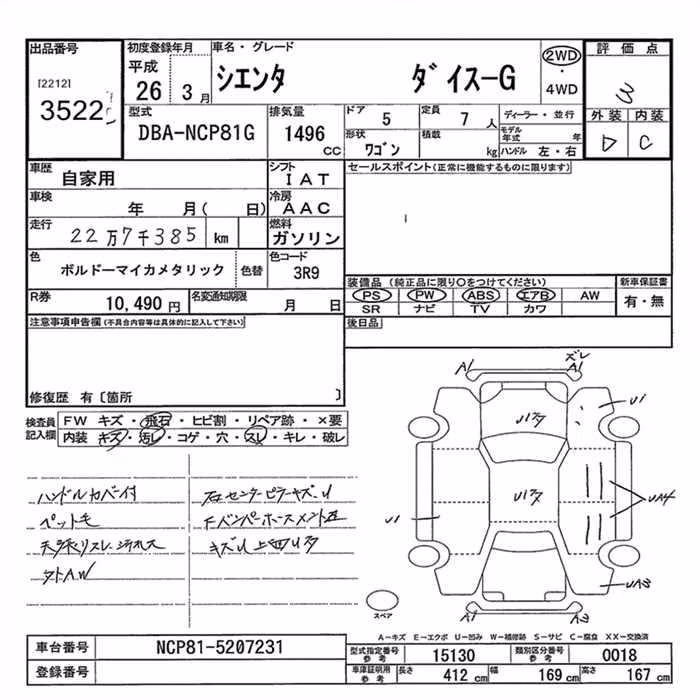 出品番号
[2212]
3522
初度登録年月
平成
26 3月
車名・グレード
シエンタ ダイスーG
2WD
・
4WD
評価点
3
外装 内装
D C
型式
DBA-NCP81G
排気量
1496
CC
ドア 5
定員 7人
形状
ワゴン
積載
kg
ディーラー・並行
モデル年式 年
ハンドル 左・右
車歴
自家用
シフト
IAT
車検
年 月( 日)
冷房
AAC
走行
22万7千385 km
燃料
ガソリン
色
ボルドーマイカメタリック
色替
色コード
3R9
R券
10,490 円
名変通知期限
月 日
セールスポイント(正常に機能するものに限ります)
装備品 (純正品に限り○をつけてください)
PS PW ABS エアB AW
SR ナビ TV カワ
新車保証書
有・無
後日品
注意事項申告欄(不具合内容等は具体的に記入して下さい)
修復歴 有〔箇所 〕
検査員
記入欄
FW キズ・飛石・ヒビ割・リペア跡・×要
内装・キズ・汚レ・コゲ・穴・スレ・キレ・破レ
ハンドルカバー付
ペット毛
タトAW
石センターピラーキズ・U
A1
ズレ
A1
U1
U1
A1
A3
スペア
A-キズ E-エクボ U-凹み W-補修跡 S-サビ C-腐食 XX-交換済
車台番号
NCP81-5207231
登録番号
型式指定番号
参考
15130
類別区分番号
参考
0018
車庫証明用
参考
長さ
412 cm
幅
169 cm
高さ
167 cm